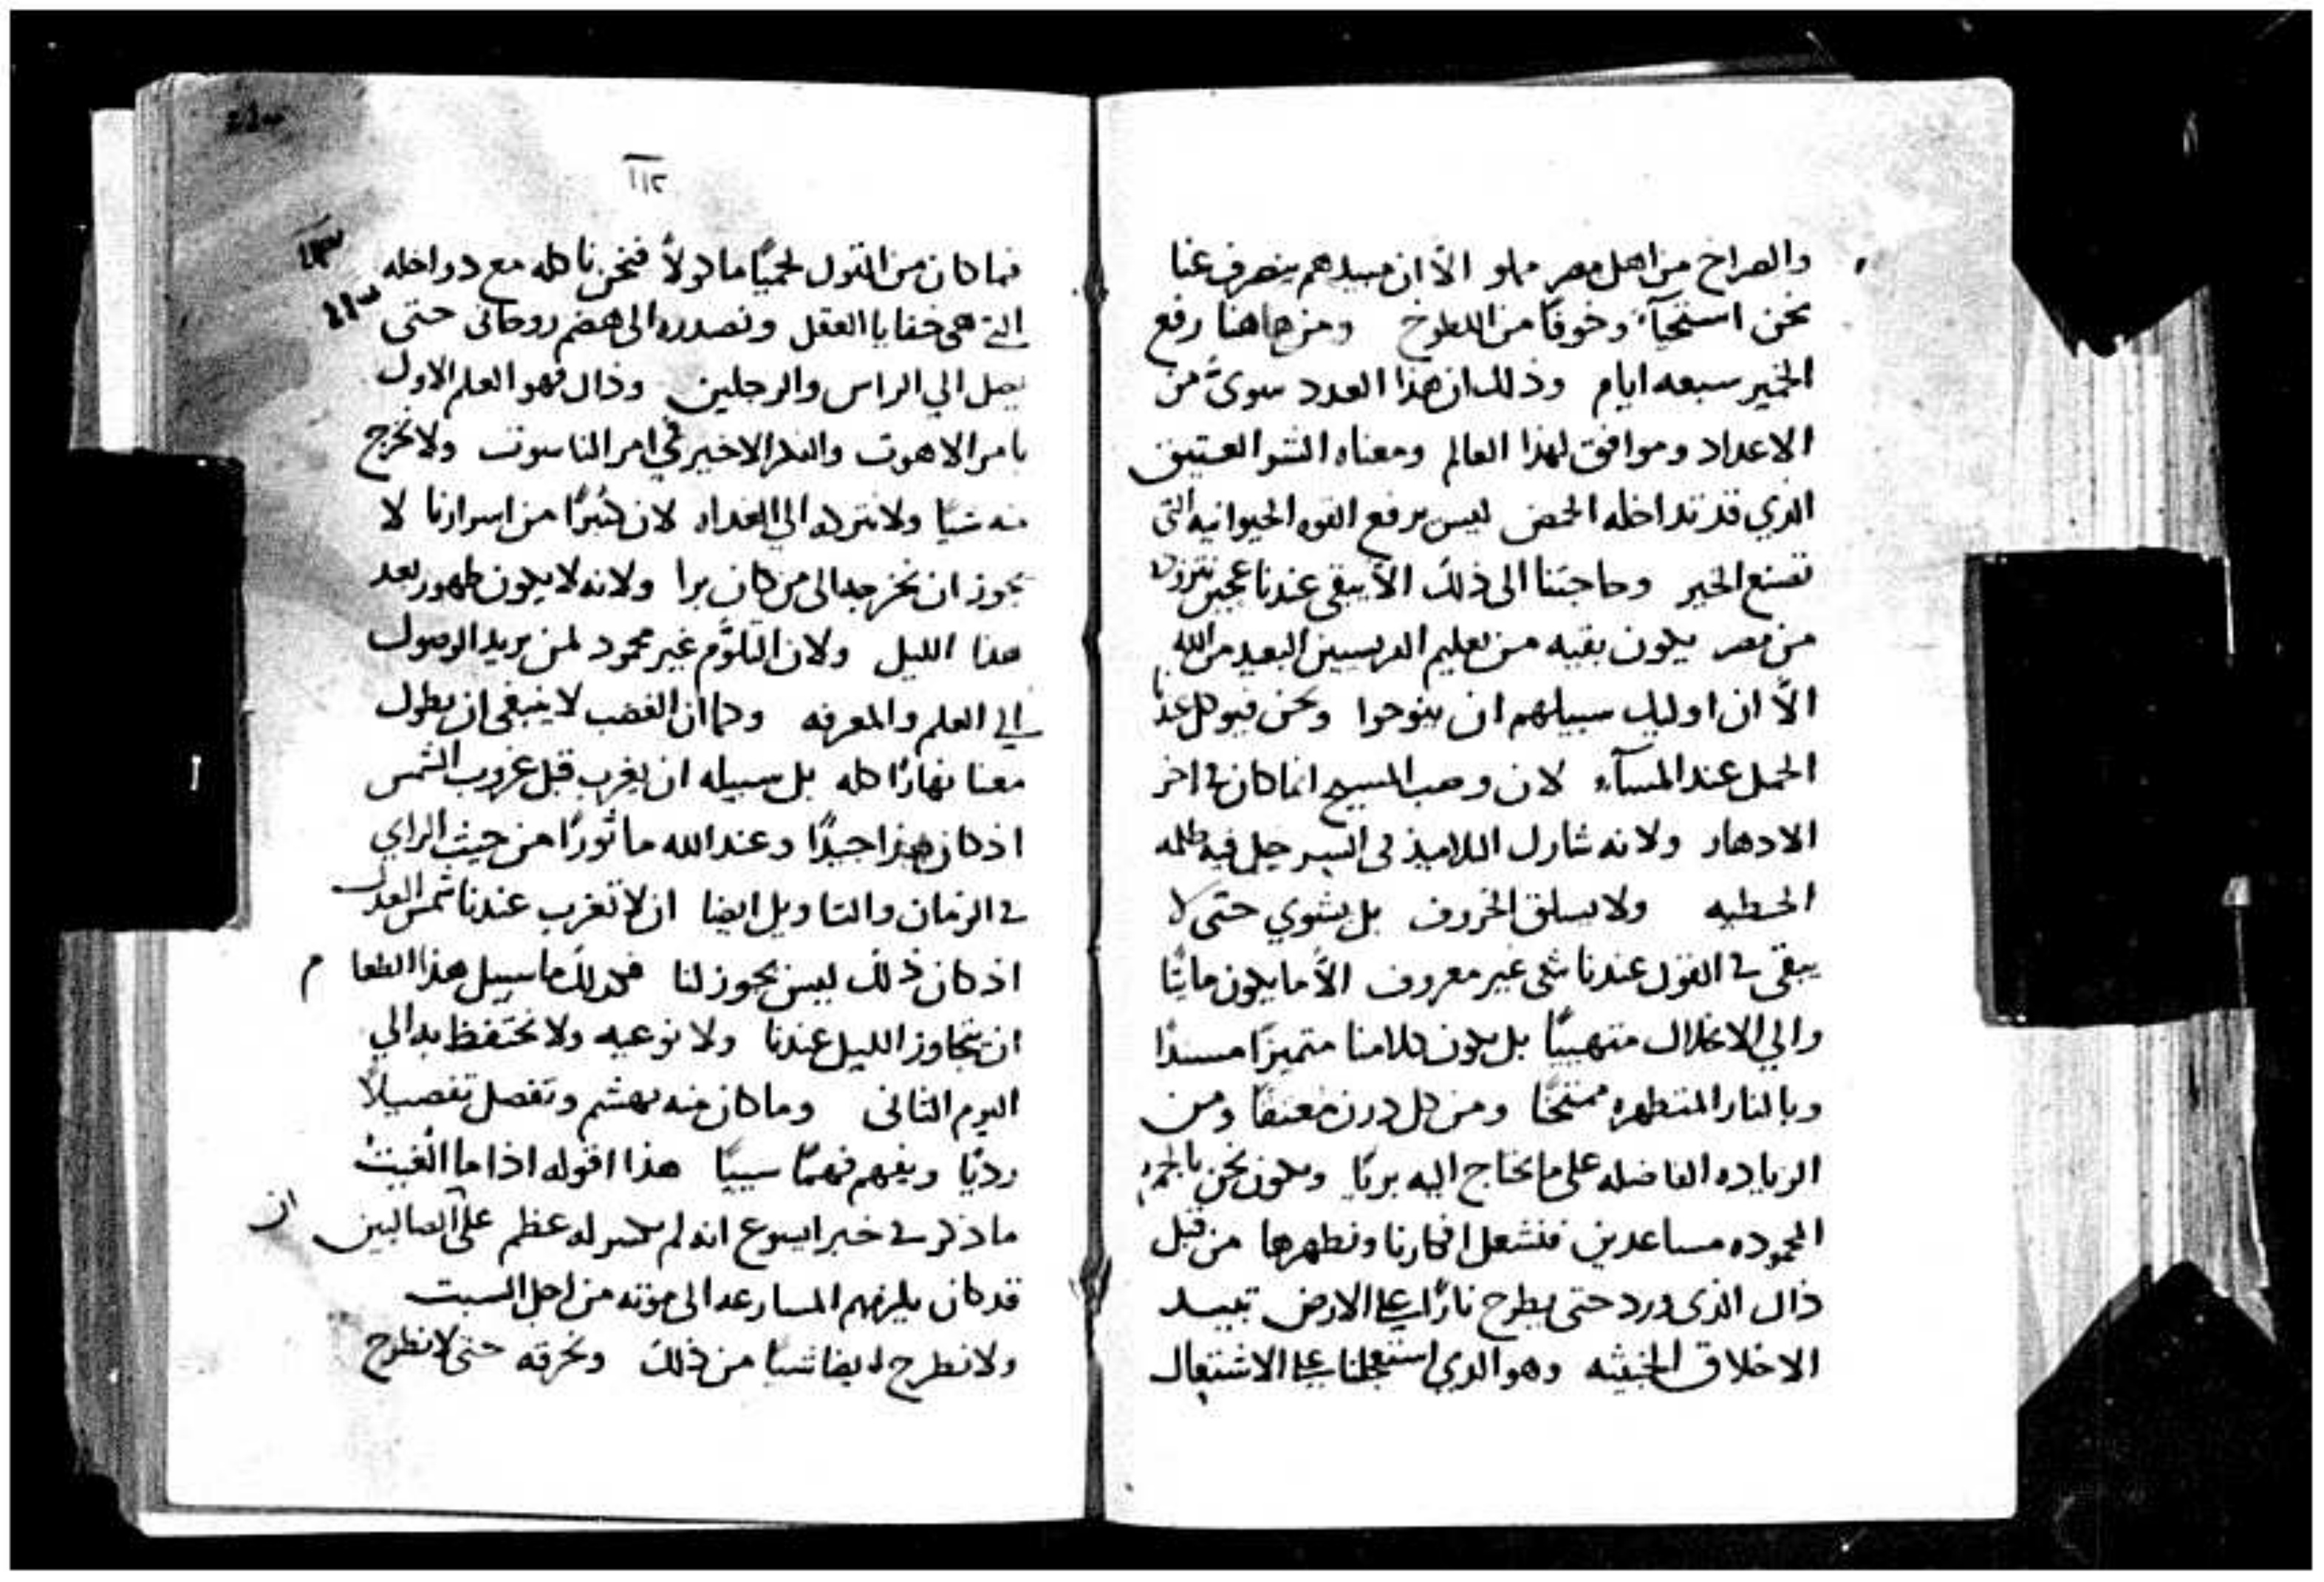 والصراخ من اهل مصر مملو الا ان مبيدهم ينصرف عنا
نحن استحيآءً وخوفًا من اللطوخ ومن هاهنا رفع
الخمير سبعه ايام وذلك ان هذا العدد سوىً من
الاعداد وموافق لهذا العالم ومعناه الشر العتيق
الذي قد تداخله الحمض ليس برفع القوه الحيوانيه التى
تصنع الخبر وحاجتنا الى ذلك الا يبقى عندنا عجين
من مصر يكون بقيه من تعليم الفريسيين البعيد من الله
الاّ ان اوليك سبيلهم ان ينوحوا ونحن فيوكل عندنا
الحمل عند المسآء لان وهب المسيح انما كان في اخر
الادهار ولانه شارك التلاميذ فى السر حل فيه ظلمه
الخطيه ولا يسلق الخروف بل يشوي حتى لا
يبقى في القول عندنا شى غير معروف الاّ ما يكون مايتًا
والي الانحلال متهييًا بل يكون كلامنا متميزًا مسددًا
وبالنار المتطهره ممتحنًا ومن كل درن معتقًا ومن
الزياده الفاضله على ما نحتاج اليه بريًا ونكون نحن
المحموده مساعدين فنشعل افكارنا ونطهرها من قبل
ذاك الذى ورد حتى يطرح نارًا على الارض تبيد
الاخلاق الخبيثه وهو الذي استعجلنا على الاشتعال
١١٢
فما كان من القول لحميًا ماكولاً فنحن ناكله مع دواخله
التي هي خفايا العقل ونصدره الى هضم روحانى حتى
يصل الي الراس والرجلين وذاك فهو العلم الاول
بامر الاهوت والفكر الاخير في امر الناسوت ولا نخرج
منه شيًا ولا نتركه الي الغداه لان كثيرًا من اسرارنا لا
يجوز ان نخرجها الى من كان برا ولانه لا يكون طهور بعد
هذا الليل ولان التلوّم غير محمود لمن يريد الوصول
الي العلم والمعرفه وكما ان الغضب لا ينبغى ان يطول
معنا نهارًا كله بل سبيله ان يغرب قبل غروب الشمس
اذ كان هذا جيدًا وعند الله ماثورًا من حيث الراي
في الزمان والتاويل ايضا ان لا تغرب عندنا شمس العدل
اذ كان ذلك ليس يجوز لنا فكذلك ما سبيل هذا الطعام
ان يتجاوز الليل عندنا ولا نوعيه ولا نحتفظ به الي
اليوم الثانى وما كان منه يهشم وتفصل تفصيلاً
رديًا ويفهم فهمًا سييًا هذا اقوله اذا ما الغيتُ
ما ذكر في خبر ايسوع انه لم يكسر له عظم على ان الصالبين
قد كان يلزمهم المسارعه الى موته من اجل السبت
ولا نطرح ايضا شيًا من ذلك ونحرقه حتى لا نطرح